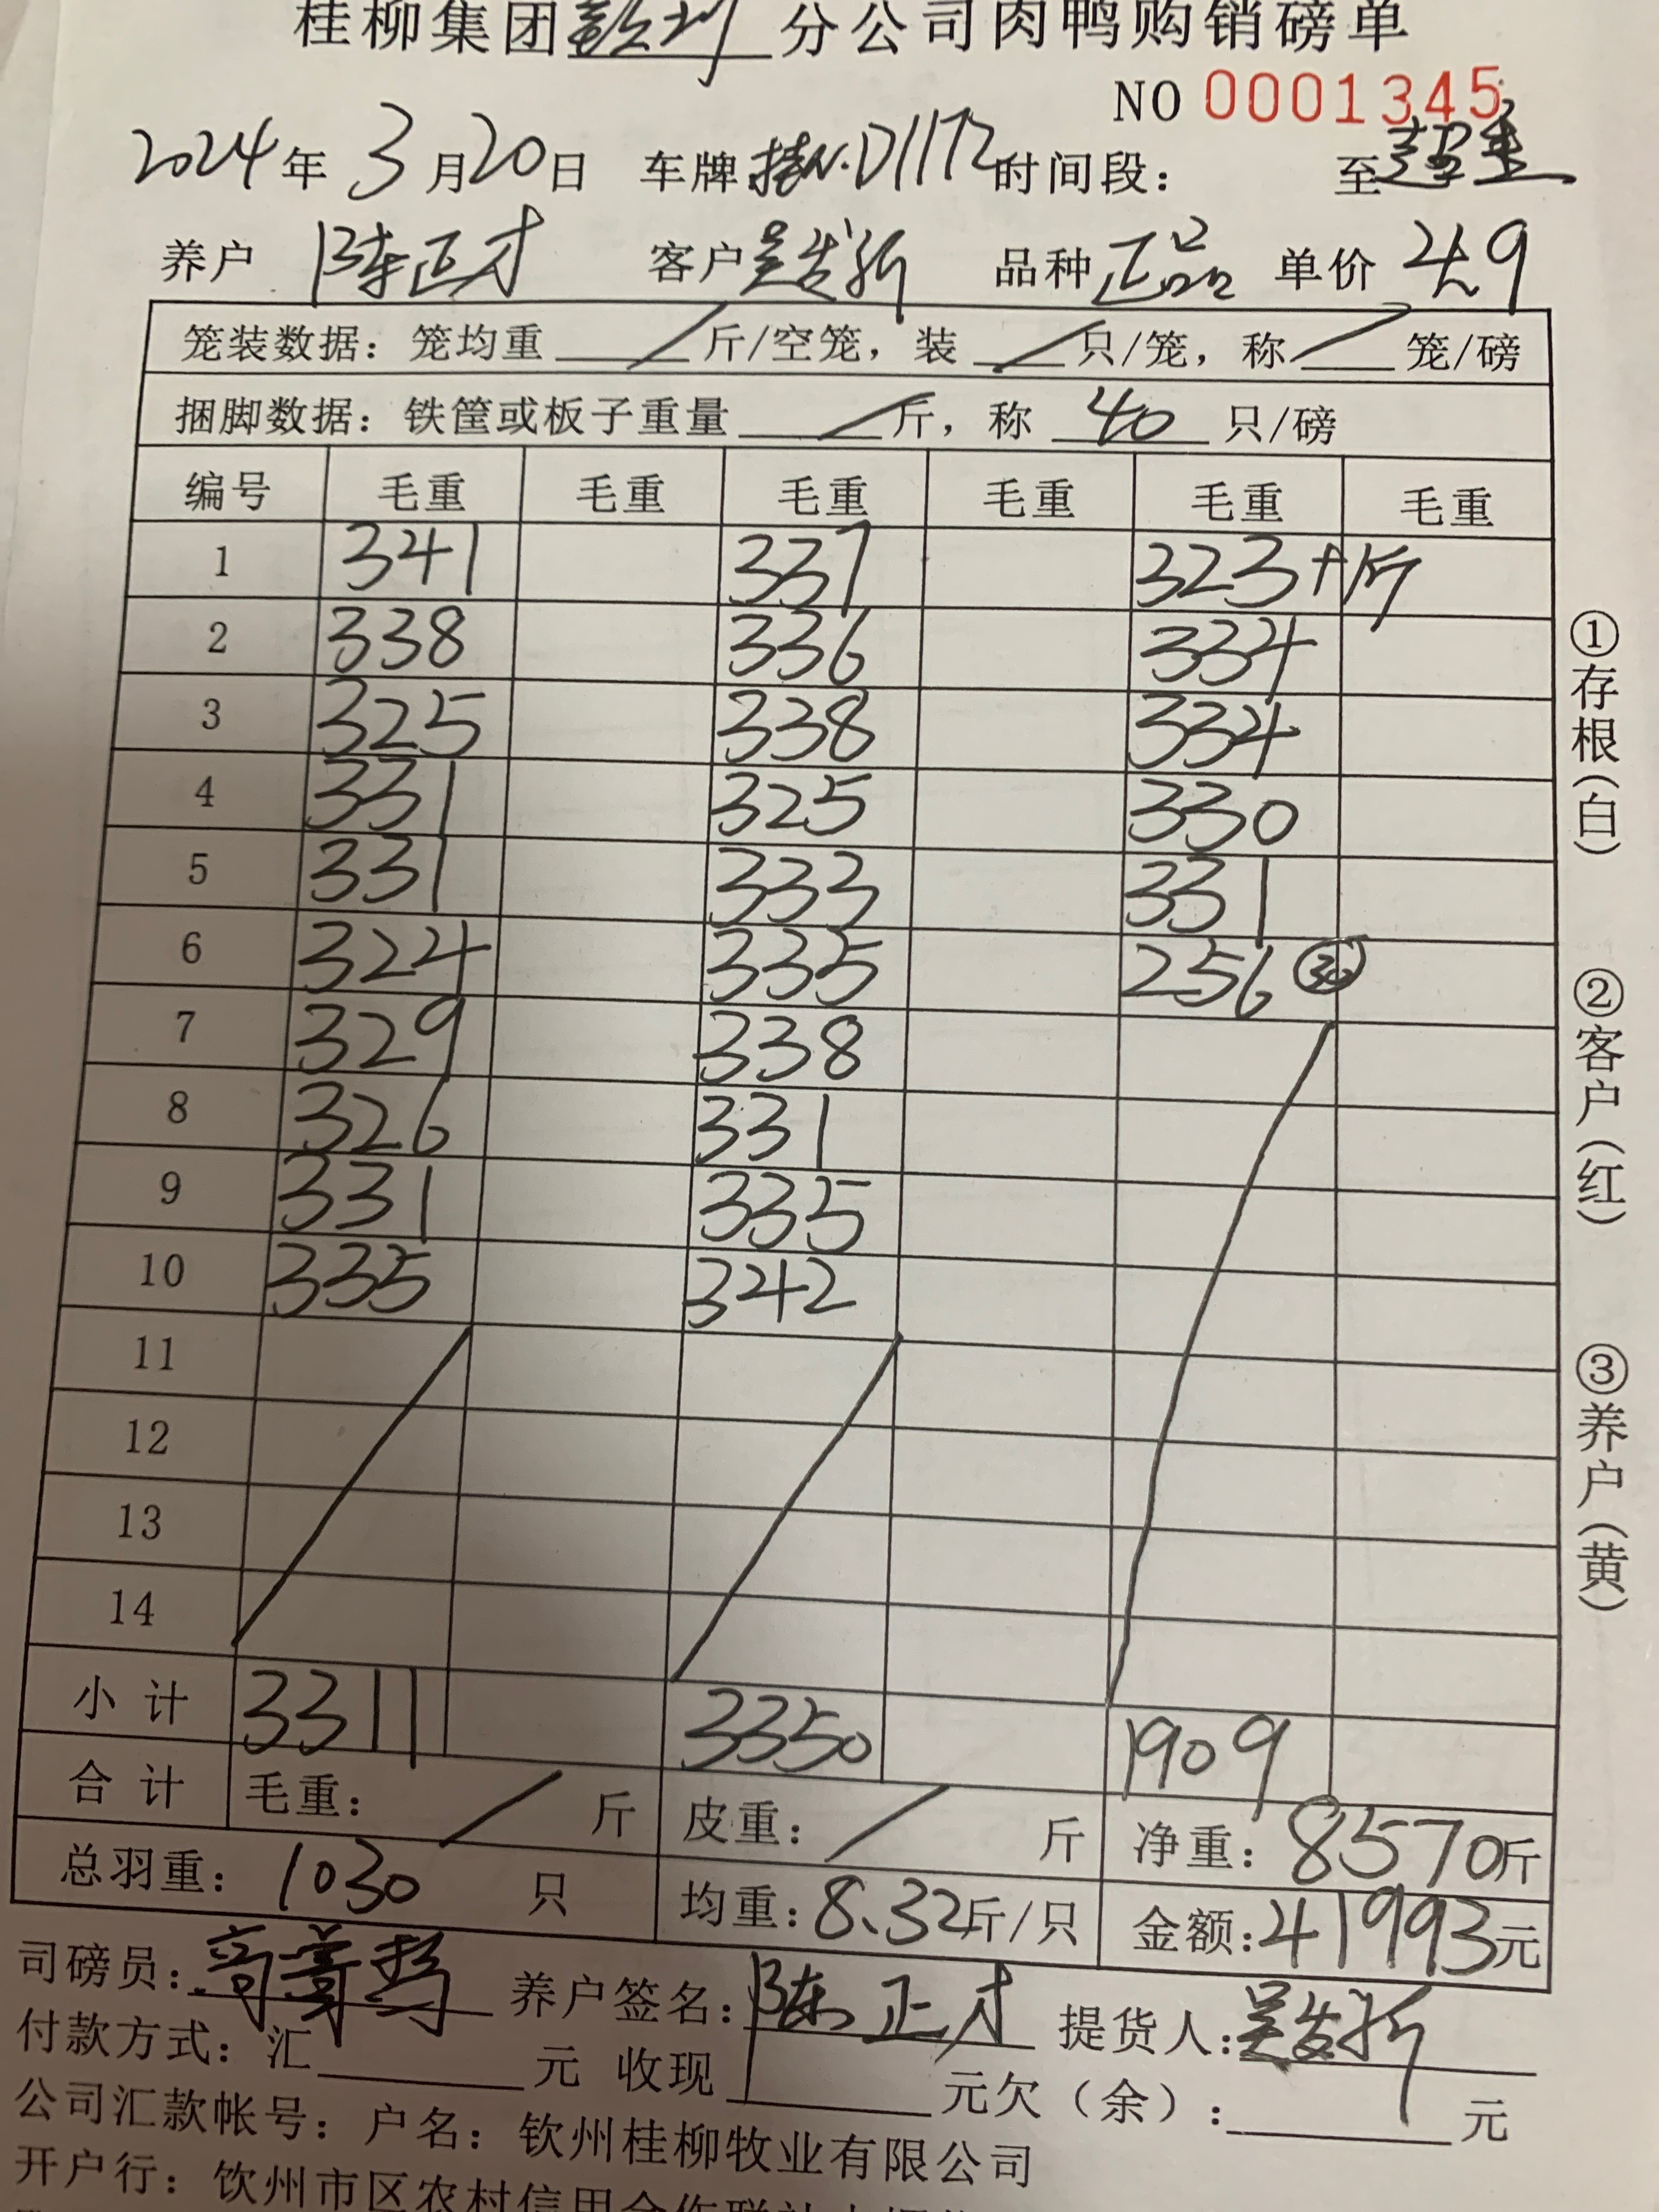 桂柳集团钦州分公司肉鸭购销磅单
NO 0001345
2024年 3月20日 车牌 D1172 时间段： 至 超重
养户 陈正才 客户 吴发新 品种 正品 单价 4.9
笼装数据：笼均重 / 斤/空笼，装 / 只/笼，称 / 笼/磅
捆脚数据：铁筐或板子重量 / 斤，称 40 只/磅
编号 毛重 毛重 毛重 毛重 毛重 毛重
1 341 337 323+1斤
2 338 336 334
3 325 338 334
4 331 325 330
5 331 333 331
6 324 335 256 30
7 329 338
8 326 331
9 331 335
10 335 342
11
12
13
14
小计 3311 3350 1909
合计 毛重： / 斤 皮重： / 斤 净重：8570斤
总羽重：1030 只 均重：8.32斤/只 金额：41993元
司磅员： 养户签名：陈正才 提货人：吴发新
付款方式：汇 元 收现 元欠（余）： 元
公司汇款帐号：户名：钦州桂柳牧业有限公司
开户行：钦州市区农村信用合作联社
①存根（白）
②客户（红）
③养户（黄）